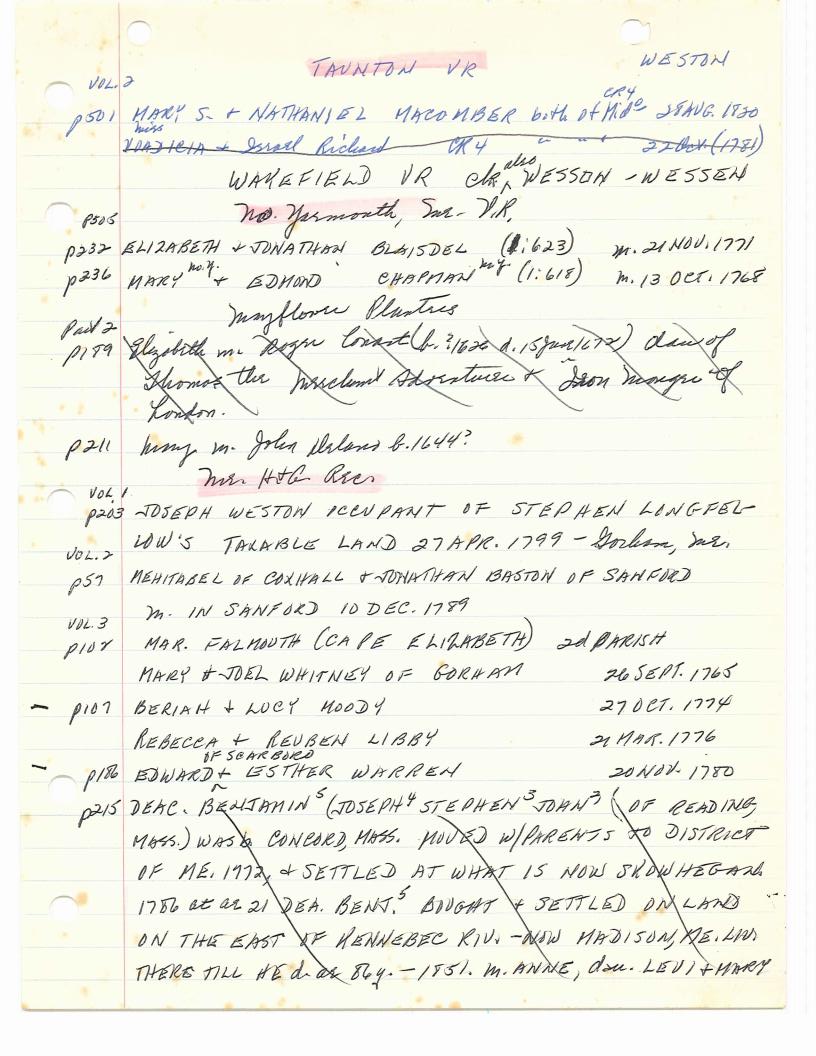 TAUNTON VR WESTON
VOL. 2
p501 MARY S. & NATHANIEL MACOMBER both of Mid° CR4 28 AUG. 1820
miss
& Israel Richard CR4 " " " 22 Oct (1781)
WAKEFIELD VR ck also WESSON - WESSEN
p505 No. Yarmouth, Me. V.R.
p232 ELIZABETH & JONATHAN BLAISDEL (1:623) m. 21 NOV. 1771
p236 MARY no.y. & EDMOND CHAPMAN n.y. (1:618) m. 13 OCT. 1768
Mayflower Planters
Part 2
p189 Elizabeth m. Roger Conant (b. ?1626 d. 15 Jun 1672) dau of
Thomas the Merchant Adventurer & Iron Monger of
London.
p211 Mary m. John Deland b. 1644?
Me. H&G Rec.
VOL. 1
p203 JOSEPH WESTON OCCUPANT OF STEPHEN LONGFEL-
LOW'S TAXABLE LAND 27 APR. 1799 - Gorham, Me.
VOL. 2
p57 MEHITABEL OF COXHALL & JONATHAN BASTON OF SANFORD
m. IN SANFORD 10 DEC. 1789
VOL. 3
p102 MAR. FALMOUTH (CAPE ELIZABETH) 2d PARISH
MARY & JOEL WHITNEY OF GORHAM 26 SEPT. 1765
- p107 BERIAH & LUCY MOODY 27 OCT. 1774
REBECCA & REUBEN LIBBY 21 MAR. 1776
OF SCARBORO
- p186 EDWARD & ESTHER WARREN 20 NOV. 1780
p215 DEAC. BENJAMIN⁵ (JOSEPH⁴ STEPHEN³ JOHN³ (OF READING,
MASS.) WAS b CONCORD, MASS. MOVED W/PARENTS TO DISTRICT
OF ME. 1772, & SETTLED AT WHAT IS NOW SKOWHEGAN
1786 at ae 21 DEA. BENJ.⁵ BOUGHT & SETTLED ON LAND
ON THE EAST OF KENNEBEC RIV. - NOW MADISON, ME. LIV.
THERE TILL HE d. ae 86 y. - 1851. m. ANNE, dau. LEVI & MARY